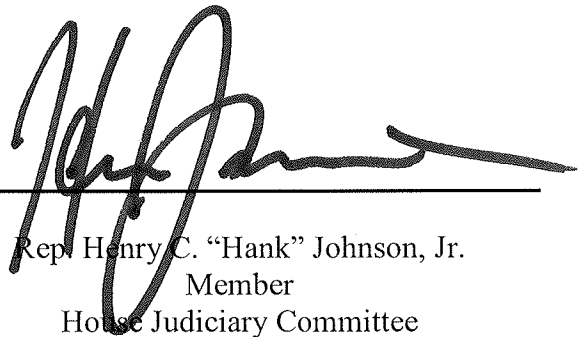 Rep. Henry C. "Hank" Johnson, Jr.
Member
House Judiciary Committee